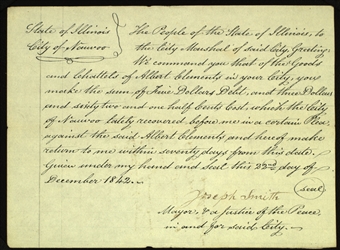 State of Illinois
City of Nauvoo
The People of the State of Illinois, to
the City Marshal of said City, Greeting.
We command you that of the Goods
and Chattels of Albert Clements in your City, you
make the sum of Five Dollars Debt, and three Dollars
and sixty two and one half Cents Cost, which the City
of Nauvoo lately recovered before me in a certain Plea
against the said Albert Clements and hereof make
return to me within seventy days from this date.
Given under my hand and seal this 22nd day of
December 1842.
Joseph Smith (seal)
Mayor & a Justice of the Peace,
in and for said City.